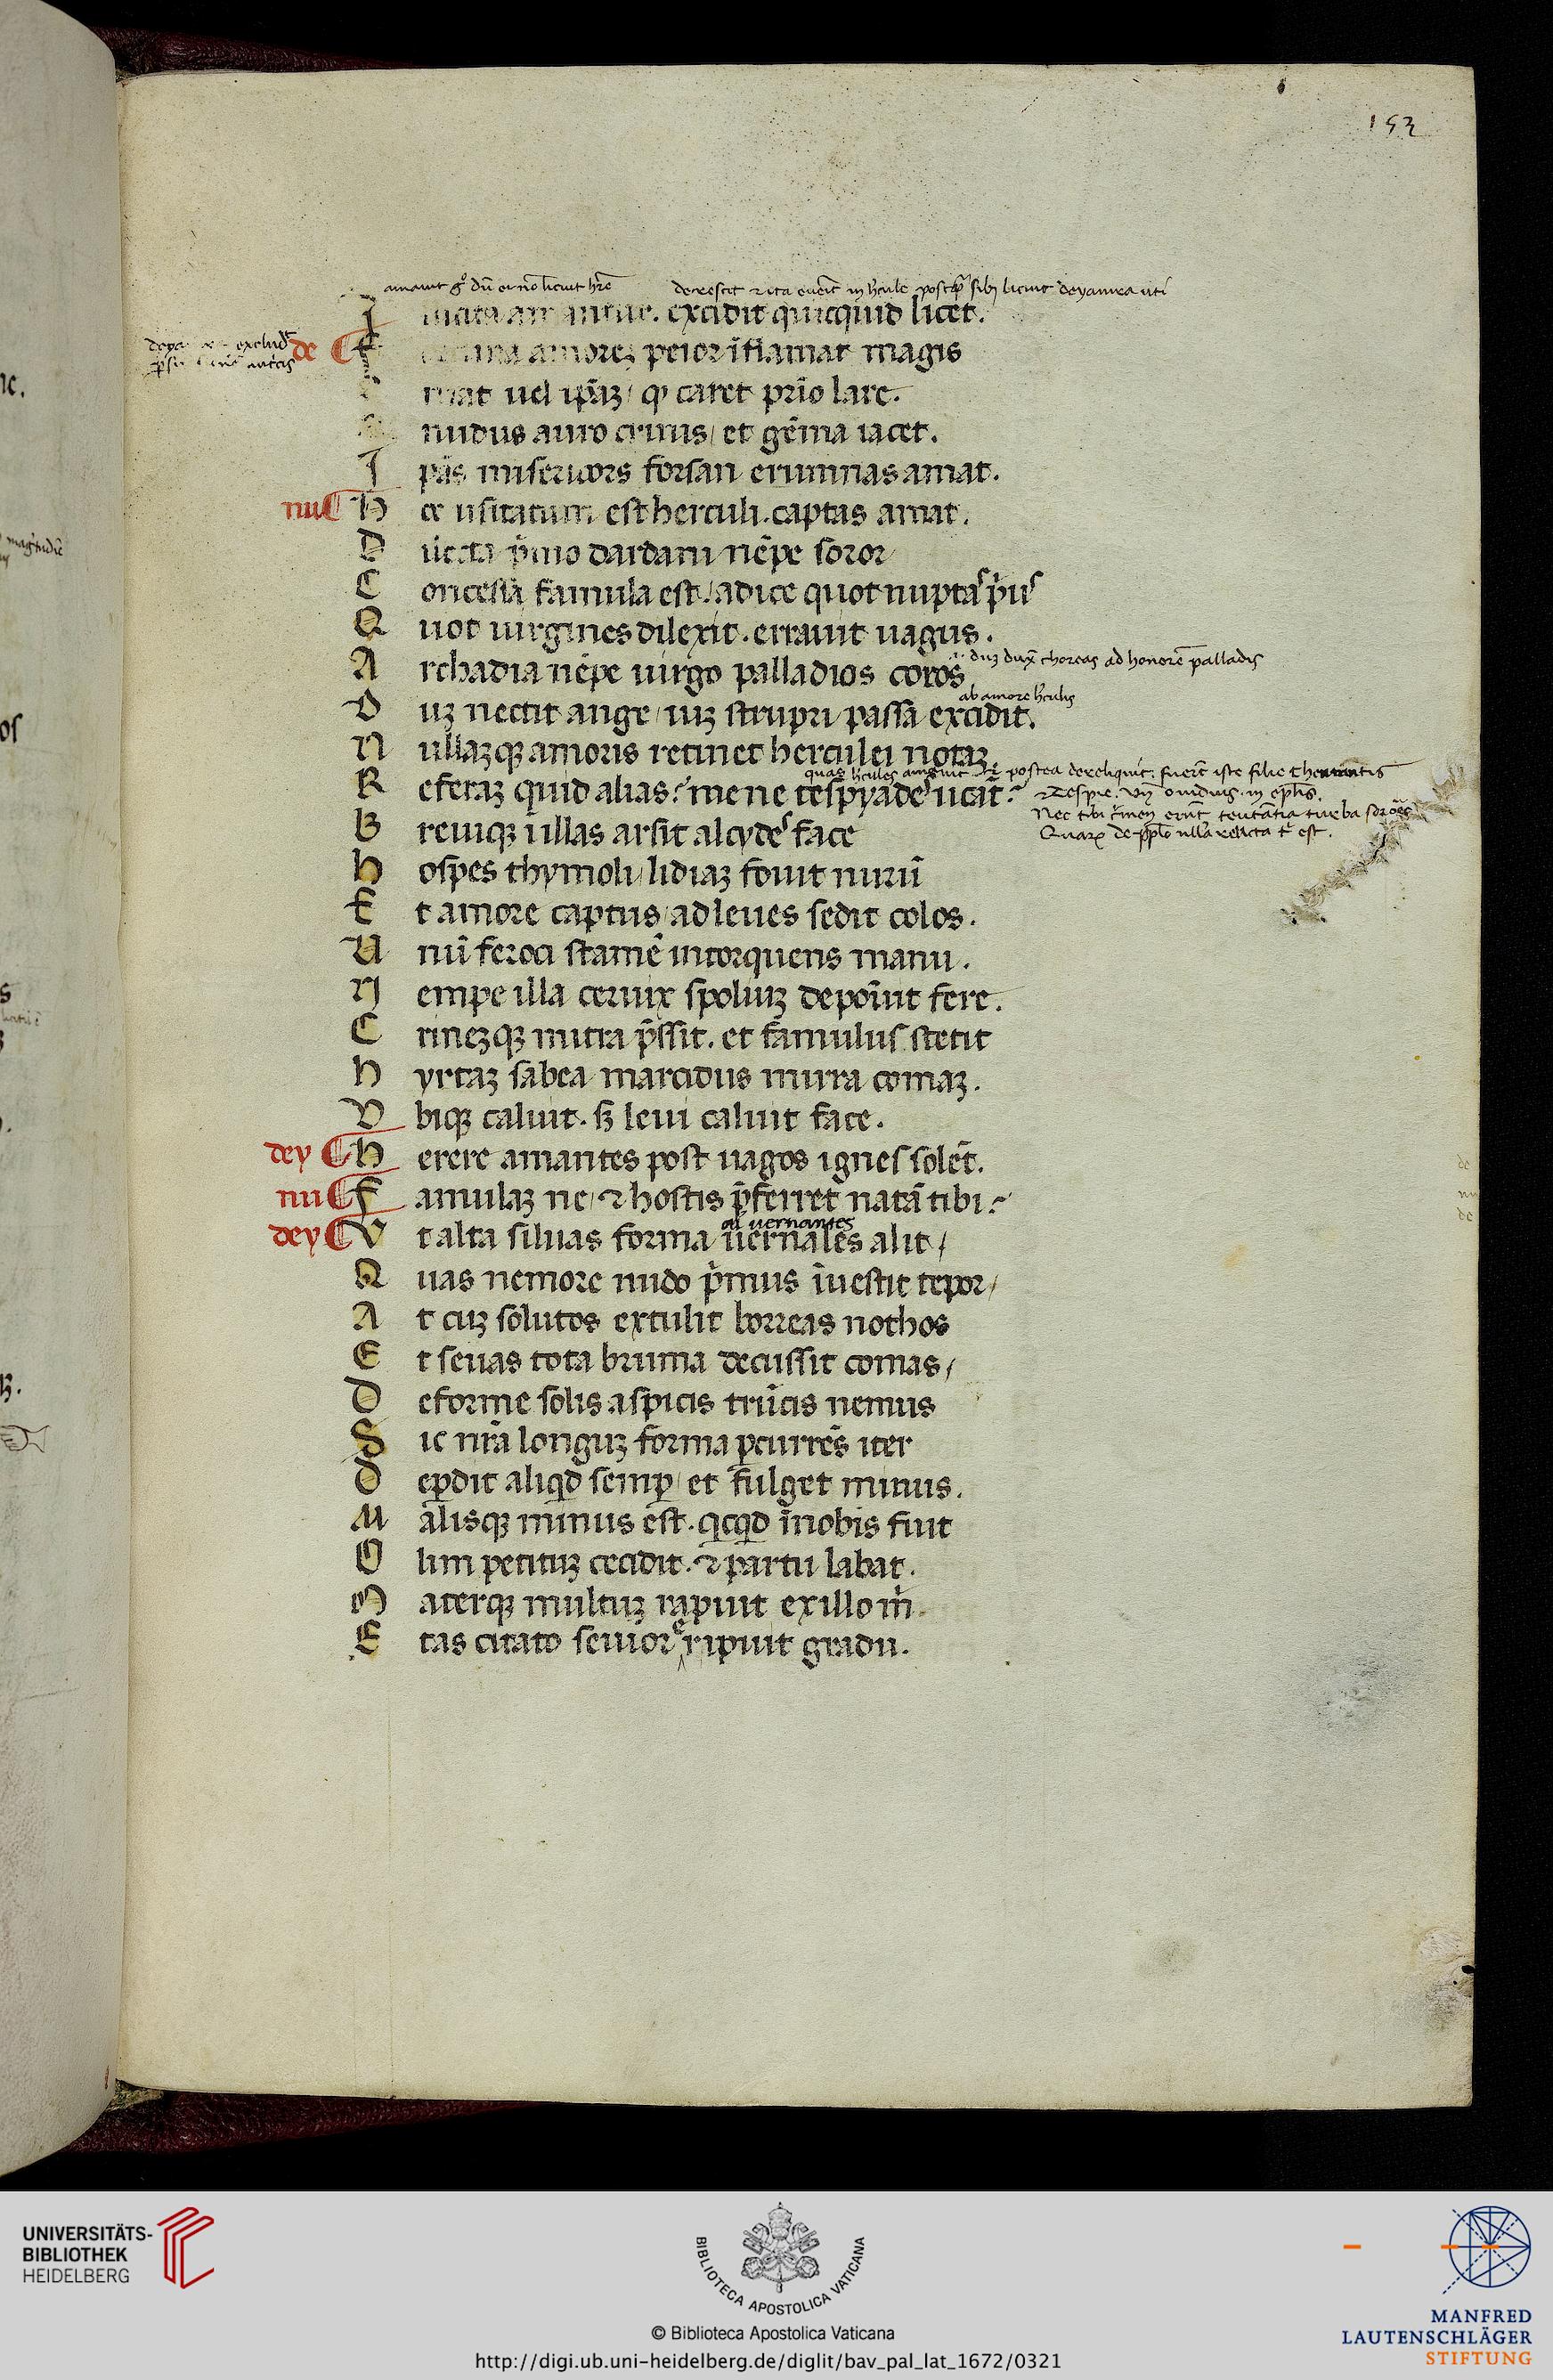 153
amauit gͦ dū ei nō licuit hr̄e   decrescit ⁊ ita euēit in h̾cule postq̄ sibi licuit deyanira uti
I llicita amantur. excidit quicquid licet.
de ¶ F ortuna amorez peior īflamat magis
A mat uel ip̄az/ qͥ caret pr̄io lare.
nudus auro crinis/ et gēma iacet.
I pas misericors forsan erumnas amat.
nu ¶ H oc usitatum est herculi. captas amat.
D ilecta p̄mo dardani nēpe soror/
C oncessa famula est. adice quot nuptas p̾us
Q uot uirgines dilexit. errauit uagus.
A rchadia nēpe uirgo palladios coros
.i. duz dux̄ choreas ad honorē palladis
D uz nectit auge/ uiz strupri passa excidit.
ab amore h̾culis
N ullazqꝫ amoris retinet herculei notaz.
R eferaz quid alias? mene tespyades uicāt?
quas h̾cules amauit ⁊ postea dereliquit. fuer̄t iste filie
⁊ Tespie. Vn̄ ouidius in ep̄lis.
Nec tibi c̾men erūt teutātia turba soro℞
Quaꝝ de pp̄lo ulla relicta t̾ est.
B reuiqꝫ illas arsit alcydes face
H ospes thymoli/ lidiaz fouit nurū
E t amore captus/ ad leues sedit colos.
U nū feroci stamē intorquens manu.
N empe illa ceruix spoliuz depoīuit fere.
C rinezqꝫ mitra p̄ssit. et famulus stetit
H yrtaz sabea marcidus mirra comaz.
V biqꝫ caluit. sꝫ leui caluit face.
dey ¶ H erere amantes post uagos ignes solēt.
nu ¶ F amulaz ne/ ⁊ hostis p̄ferret natā tibi?
al uernantes
dey ¶ V t alta siluas forma uernales alit/
Q uas nemore nudo p̾mus īuestit tepor/
A t cuz solutos extulit borreas nothos
E t seuas tota bruma decussit comas/
D eforme solis aspicis trūcis nemus
S ic nr̄a longuz forma ꝑcurrēs iter
D eꝑdit aliqͥd semꝑ/ et fulget minus.
M alisqꝫ minus est. qͥcqͥd ī nobis fuit
O lim petituz cecidit. ⁊ partu labat.
M aterqꝫ multuz rapuit ex illo m̾
E tas citato seuior eripuit gradu.
UNIVERSITÄTS-
BIBLIOTHEK
HEIDELBERG
BIBLIOTECA APOSTOLICA VATICANA
© Biblioteca Apostolica Vaticana
http://digi.ub.uni-heidelberg.de/diglit/bav_pal_lat_1672/0321
MANFRED
LAUTENSCHLÄGER
STIFTUNG